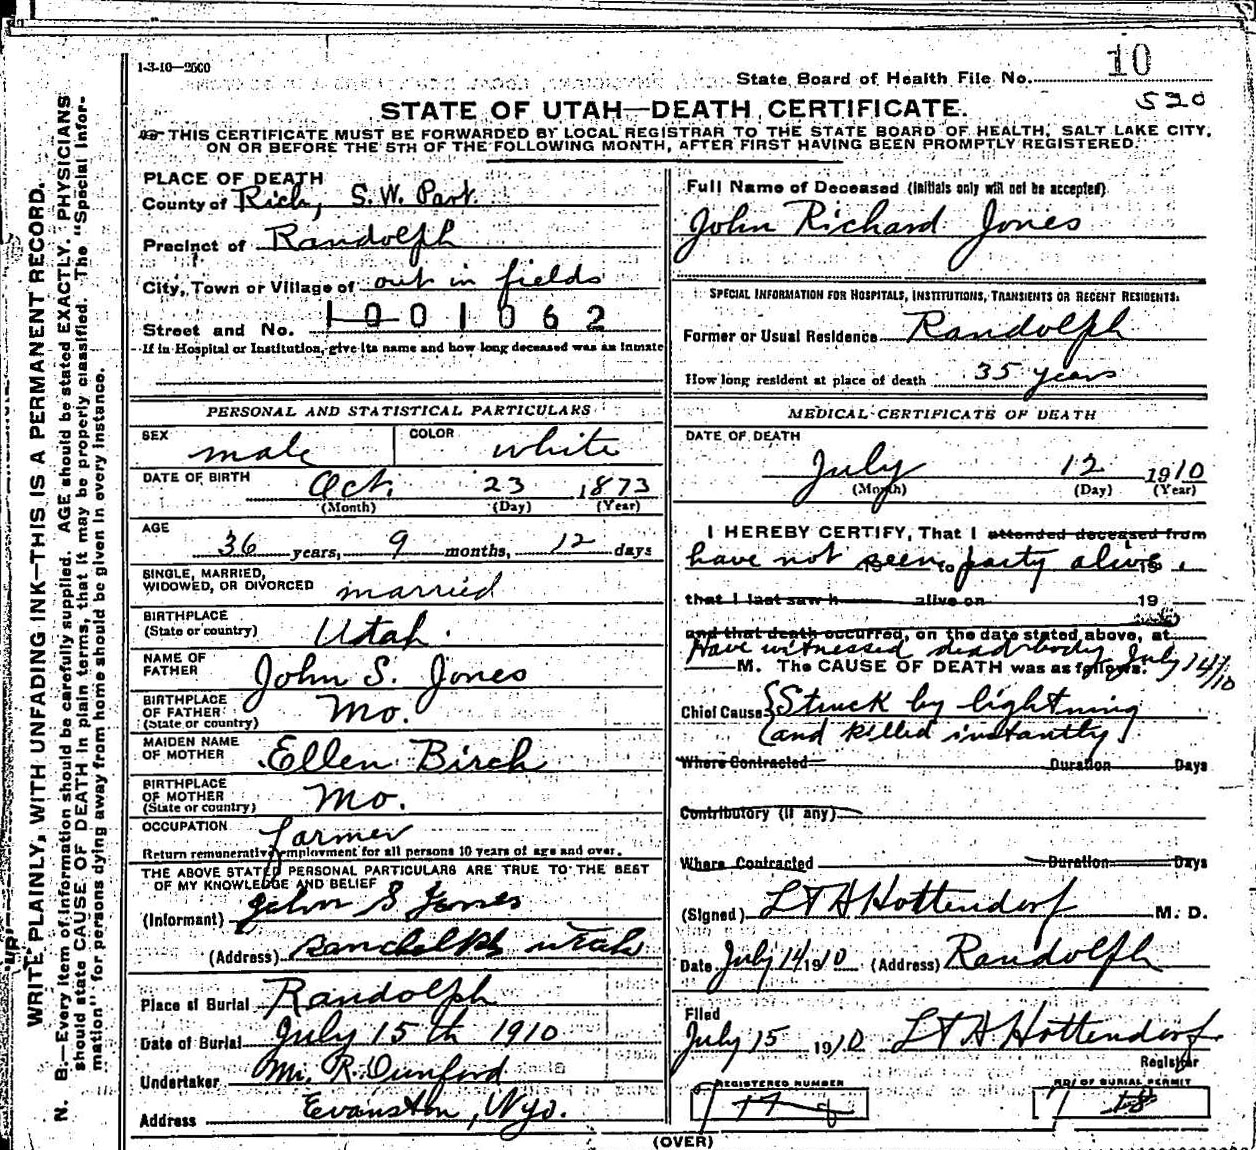 1-3-10—2500
State Board of Health File No. 10
520
STATE OF UTAH—DEATH CERTIFICATE.
THIS CERTIFICATE MUST BE FORWARDED BY LOCAL REGISTRAR TO THE STATE BOARD OF HEALTH, SALT LAKE CITY,
ON OR BEFORE THE 5TH OF THE FOLLOWING MONTH, AFTER FIRST HAVING BEEN PROMPTLY REGISTERED.
WRITE PLAINLY, WITH UNFADING INK—THIS IS A PERMANENT RECORD.
N. B.—Every item of information should be carefully supplied. AGE should be stated EXACTLY. PHYSICIANS
should state CAUSE OF DEATH in plain terms, that it may be properly classified. The "Special Infor-
mation" for persons dying away from home should be given in every instance.
PLACE OF DEATH
County of Rich, S.W. Part.
Precinct of Randolph
City, Town or Village of out in fields
Street and No. 1001062
If in Hospital or Institution, give its name and how long deceased was an inmate
PERSONAL AND STATISTICAL PARTICULARS
SEX male COLOR white
DATE OF BIRTH Oct. 23 1873
(Month) (Day) (Year)
AGE 36 years, 9 months, 12 days
SINGLE, MARRIED,
WIDOWED, OR DIVORCED married
BIRTHPLACE
(State or country) Utah.
NAME OF
FATHER John S. Jones
BIRTHPLACE
OF FATHER Mo.
(State or country)
MAIDEN NAME
OF MOTHER Ellen Birch
BIRTHPLACE
OF MOTHER Mo.
(State or country)
OCCUPATION farmer
Return remunerative employment for all persons 10 years of age and over.
THE ABOVE STATED PERSONAL PARTICULARS ARE TRUE TO THE BEST
OF MY KNOWLEDGE AND BELIEF
(Informant) John S Jones
(Address) Randolph Utah
Place of Burial Randolph
Date of Burial July 15th 1910
Undertaker Mr. R. Dunford
Address Evanston, Wyo.
Full Name of Deceased (Initials only will not be accepted)
John Richard Jones
SPECIAL INFORMATION FOR HOSPITALS, INSTITUTIONS, TRANSIENTS OR RECENT RESIDENTS:
Former or Usual Residence Randolph
How long resident at place of death 35 years
MEDICAL CERTIFICATE OF DEATH
DATE OF DEATH
July 12 1910
(Month) (Day) (Year)
I HEREBY CERTIFY, That I attended deceased from
have not seen party alive.
that I last saw h alive on 19
and that death occurred, on the date stated above, at
Have witnessed dead body July 14/10
M. The CAUSE OF DEATH was as follows:
Chief Cause Struck by lightning
and killed instantly
Where Contracted Duration Days
Contributory (if any)
Where Contracted Duration Days
(Signed) L T H Hottendorf M. D.
Date July 14 1910 (Address) Randolph
Filed
July 15 1910 L T H Hottendorf
Registrar
REGISTERED NUMBER
NO. OF BURIAL PERMIT
(OVER)